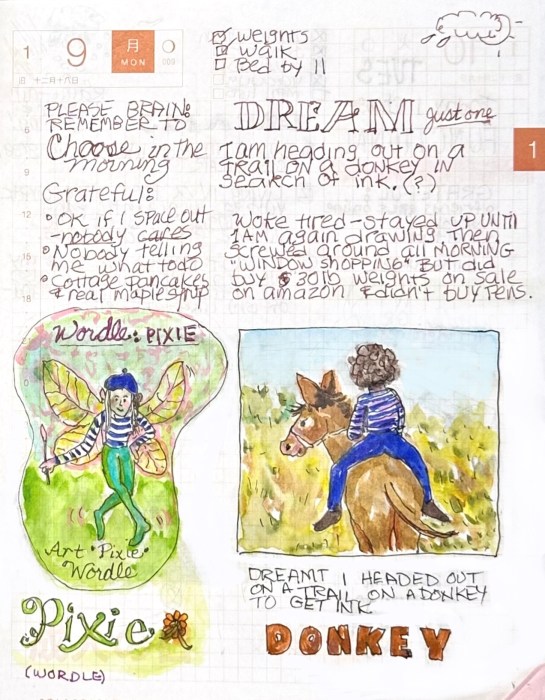 1 9 月 MON 009
旧 十二月十八日
weights
walk
Bed by 11
PLEASE BRAIN:
REMEMBER TO
Choose in the
morning
Grateful:
• OK if I space out
- nobody cares
• Nobody telling
me what to do
• Cottage Pancakes
& real maple syrup
DREAM just one
I am heading out on a
TRAIL ON A donkey IN
search of ink. (?)
Woke tired - stayed up until
1AM again drawing. Then
screwed around all morning
"WINDOW SHOPPING" But did
buy 30lb weights on sale
on amazon & didn't buy pens.
1
6
9
12
15
18
Wordle: PIXIE
Art "Pixie"
Wordle
Pixie
(WORDLE)
DREAMT I HEADED OUT
ON A TRAIL ON A DONKEY
TO GET INK
DONKEY